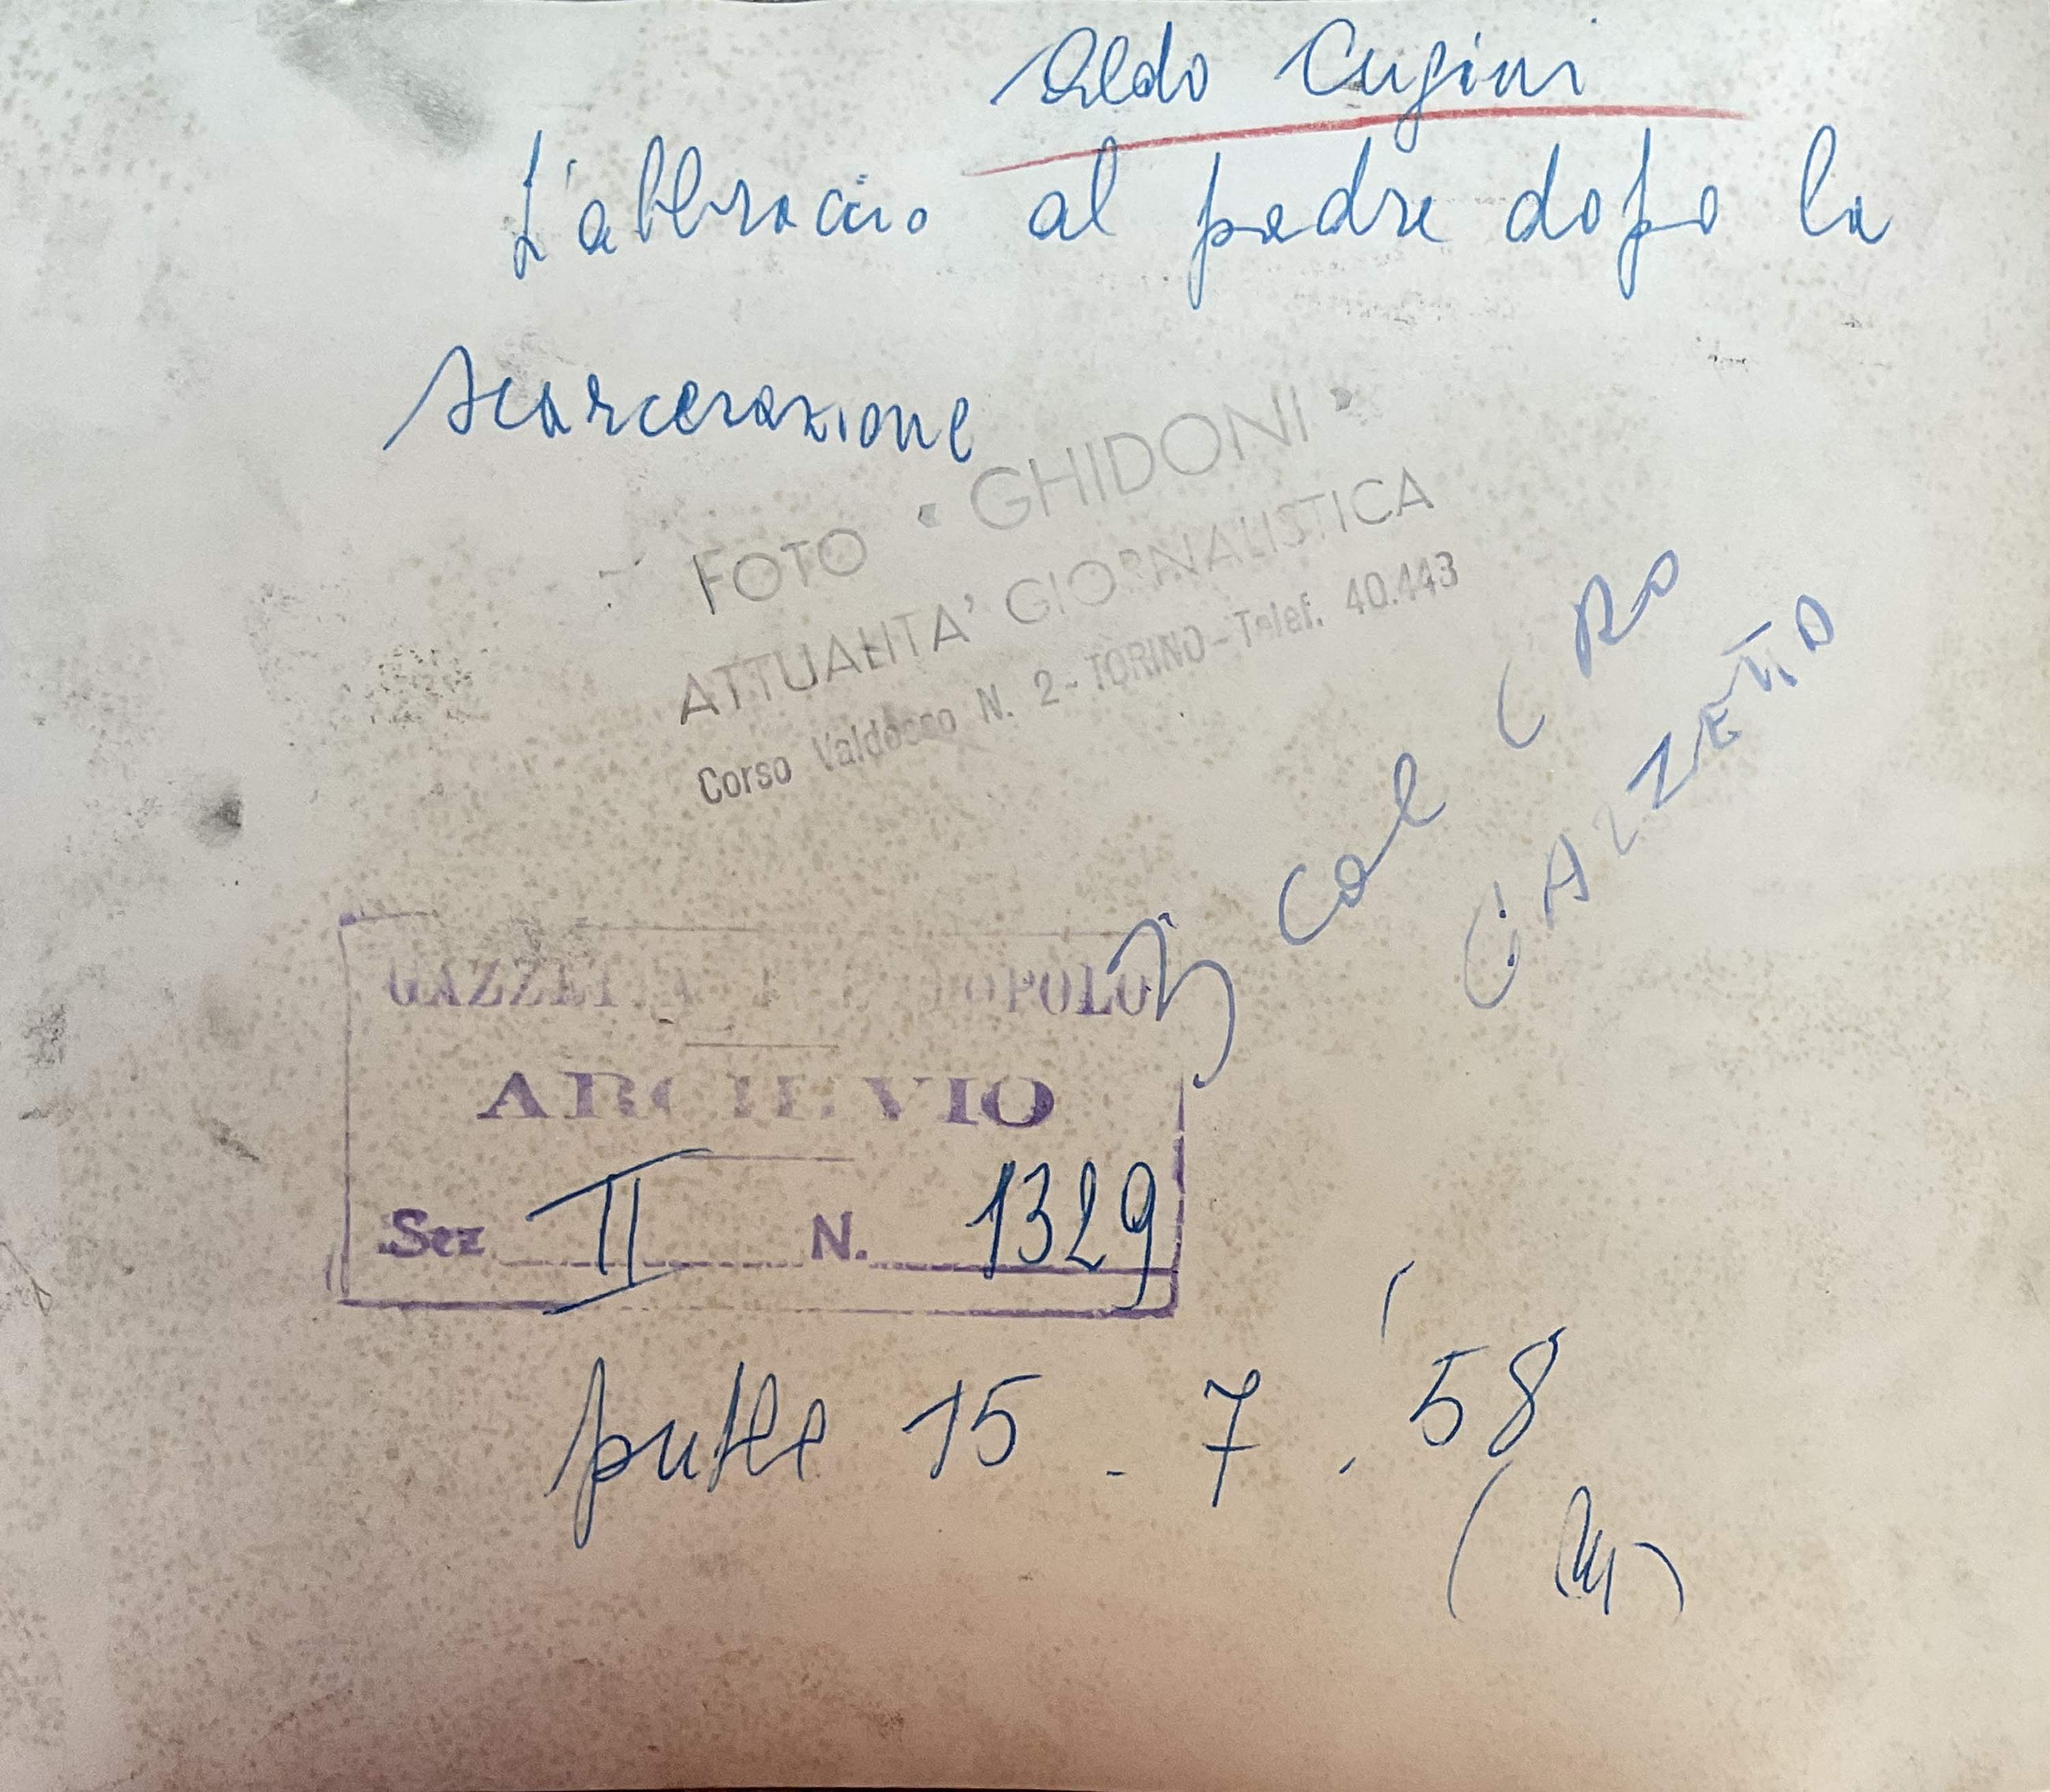 Aldo Cugini
L'abbraccio al padre dopo la
scarcerazione
FOTO « GHIDONI »
ATTUALITA' GIORNALISTICA
Corso Valdocco N. 2 - TORINO - Telef. 40.443
3 col CRO
GAZZETTA
GAZZETTA DEL POPOLO
ARCHIVIO
Sez II N. 1329
15 . 7 . '58